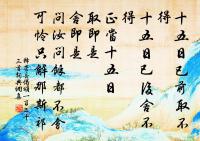 十五日已前取不
得
十五日已後舍不
得
正當十五日
取即是
舍即是
問汝問余都不會
可怜只解那斯祁